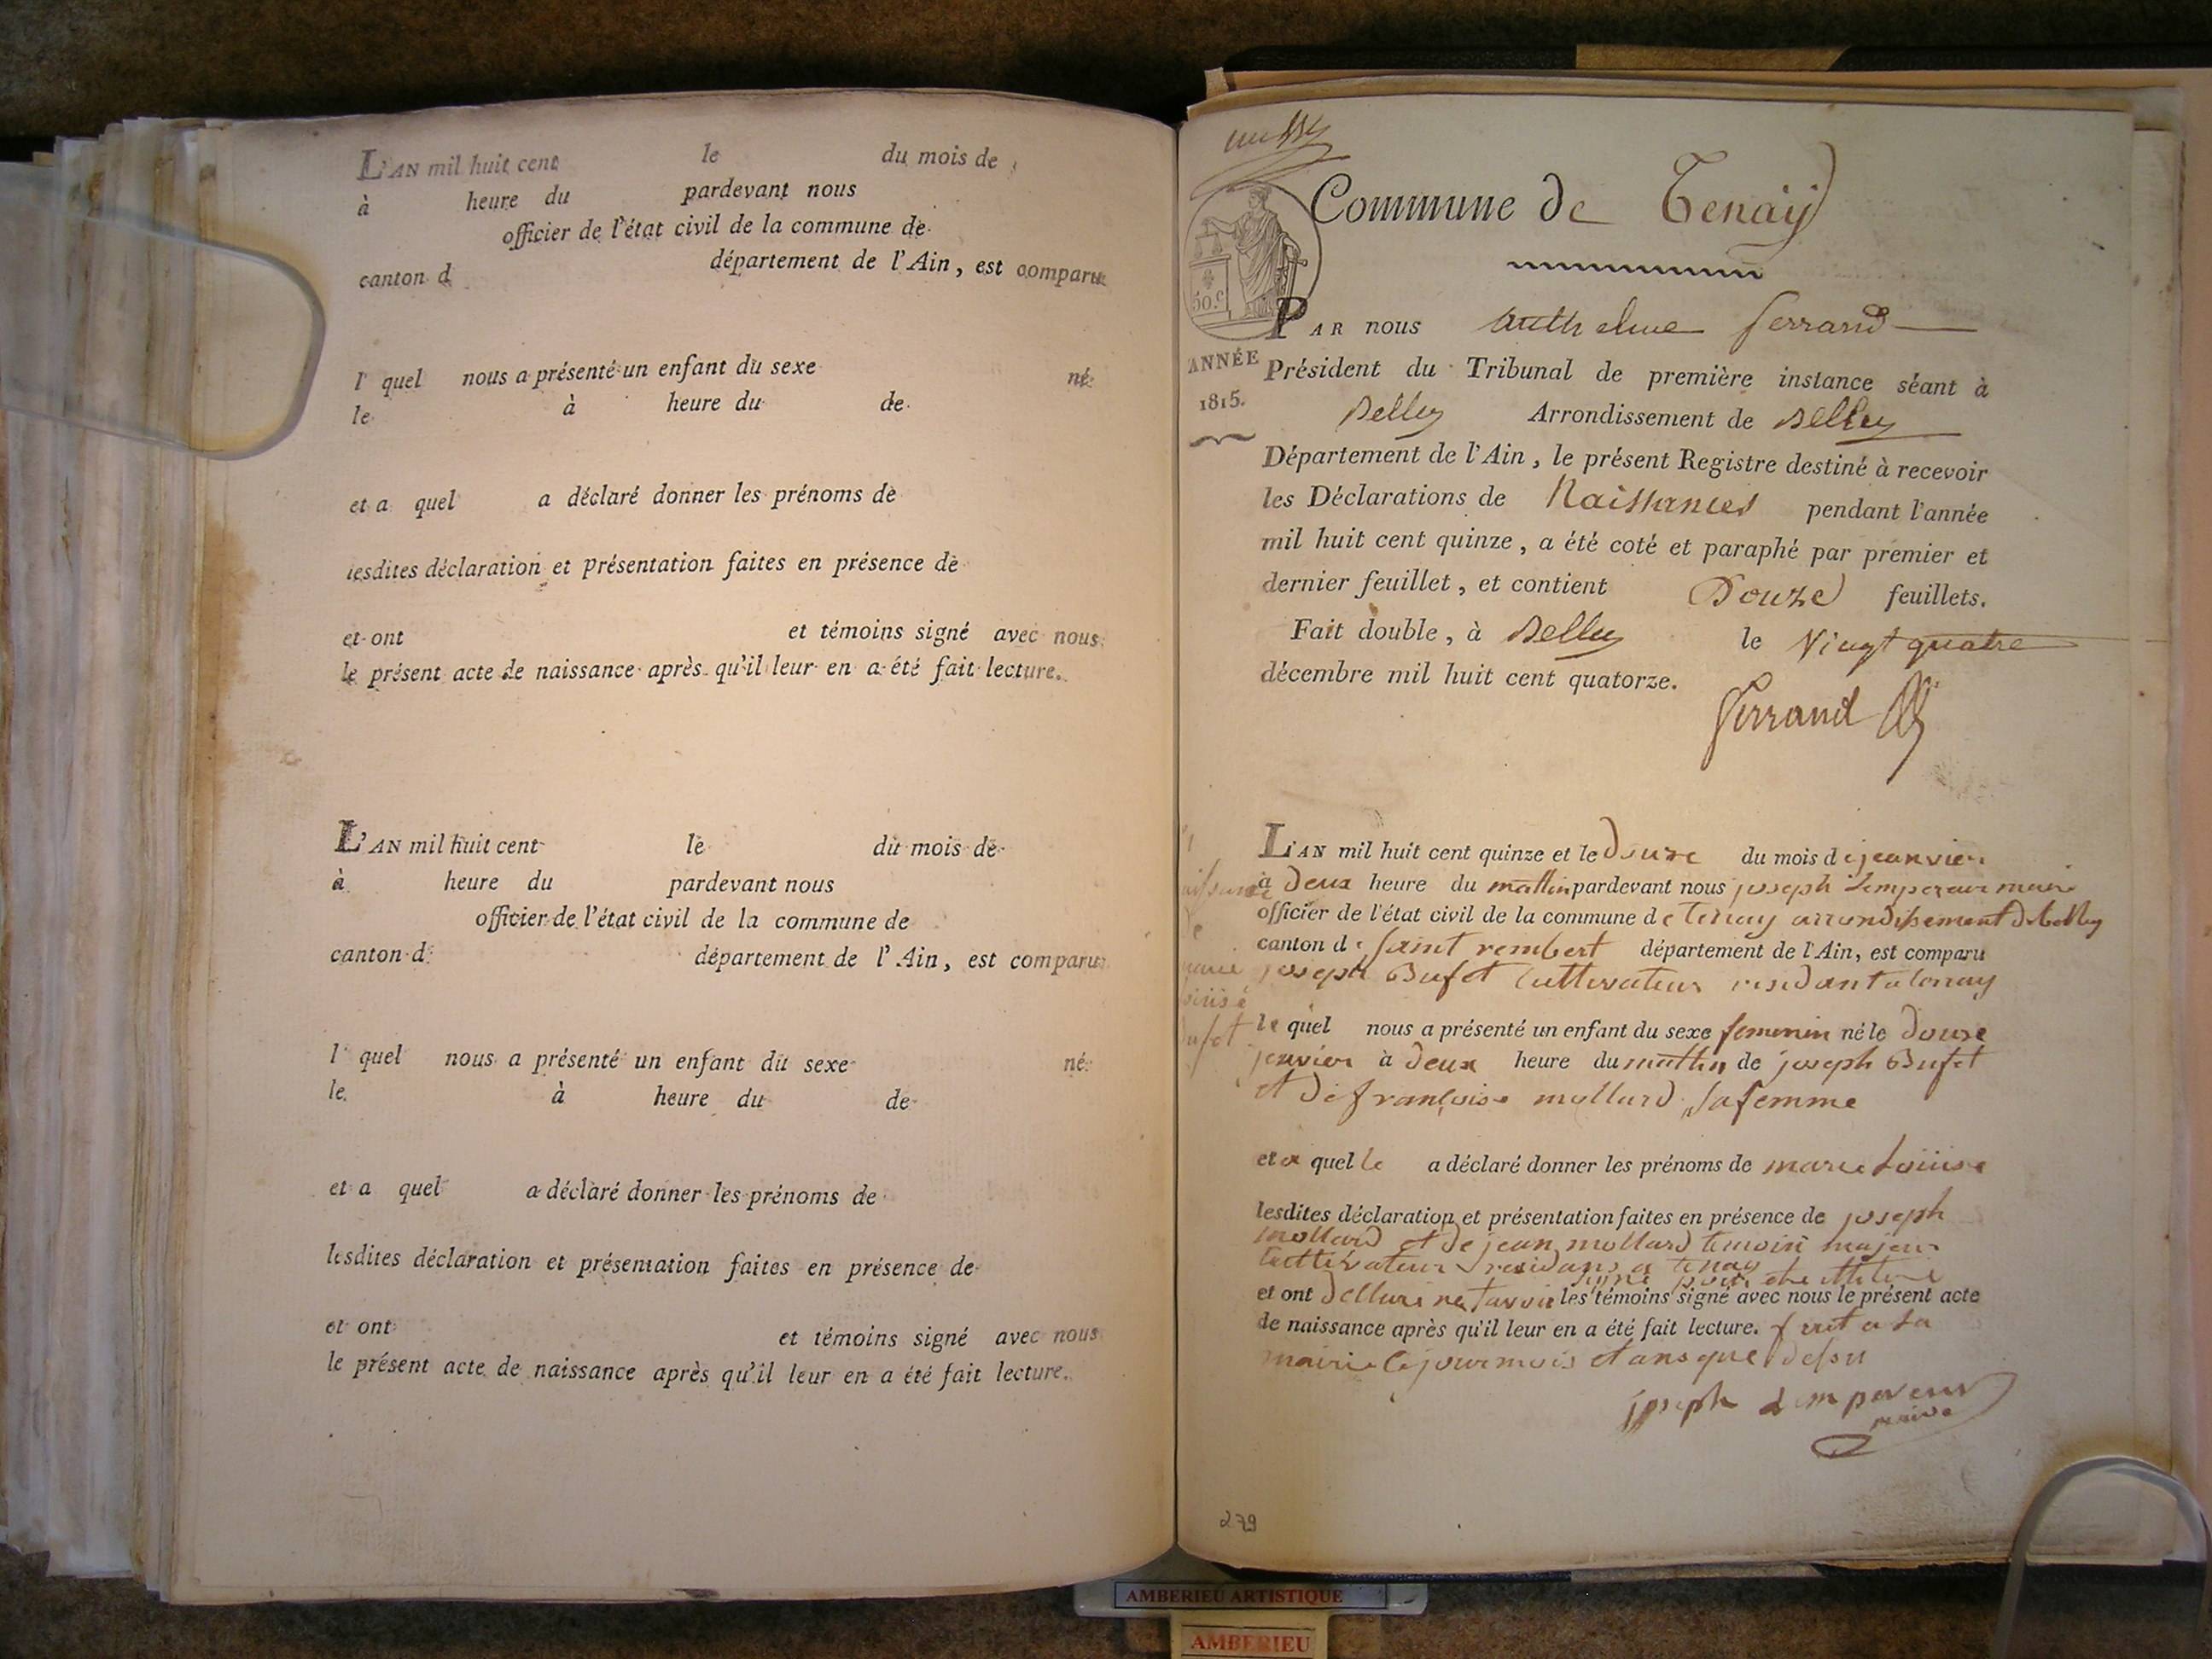 L'AN mil huit cent le du mois de
à heure du pardevant nous
officier de l'état civil de la commune de
canton d département de l'Ain, est comparu
l' quel nous a présenté un enfant du sexe né
le à heure du de
et a quel a déclaré donner les prénoms de
lesdites déclaration et présentation faites en présence de
et ont et témoins signé avec nous
le présent acte de naissance après qu'il leur en a été fait lecture.
L'AN mil huit cent le du mois de
à heure du pardevant nous
officier de l'état civil de la commune de
canton d département de l'Ain, est comparu
l' quel nous a présenté un enfant du sexe né
le à heure du de
et a quel a déclaré donner les prénoms de
lesdites déclaration et présentation faites en présence de
et ont et témoins signé avec nous
le présent acte de naissance après qu'il leur en a été fait lecture.
Commune de Tenay
50.c
ANNÉE
1815.
PAR nous Anthelme ferrand
Président du Tribunal de première instance séant à
Belley Arrondissement de Belley
Département de l'Ain, le présent Registre destiné à recevoir
les Déclarations de Naissances pendant l'année
mil huit cent quinze, a été coté et paraphé par premier et
dernier feuillet, et contient Douze feuillets.
Fait double, à Belley le Vingt quatre
décembre mil huit cent quatorze.
ferrand
L'AN mil huit cent quinze et le douze du mois de jeanvier
à deux heure du mattin pardevant nous joseph Lempereur maire
officier de l'état civil de la commune de tenay arrondissement de belley
canton de saint rembert département de l'Ain, est comparu
joseph Bufet Cultivateur residant a tenay
le quel nous a présenté un enfant du sexe femenin né le douze
jenvier à deux heure du mattin de joseph Bufet
et de françoise mollard sa femme
et a quel le a déclaré donner les prénoms de marie Louise
lesdites déclaration et présentation faites en présence de joseph
mollard et de jean mollard temoin majeur
Cultivateur residans a tenay
et ont les témoins signé avec nous le présent acte
de naissance après qu'il leur en a été fait lecture. fait a la
mairie le jour mois et ans que desu
joseph Lempereur
maire
279
AMBERIEU ARTISTIQUE
AMBERIEU